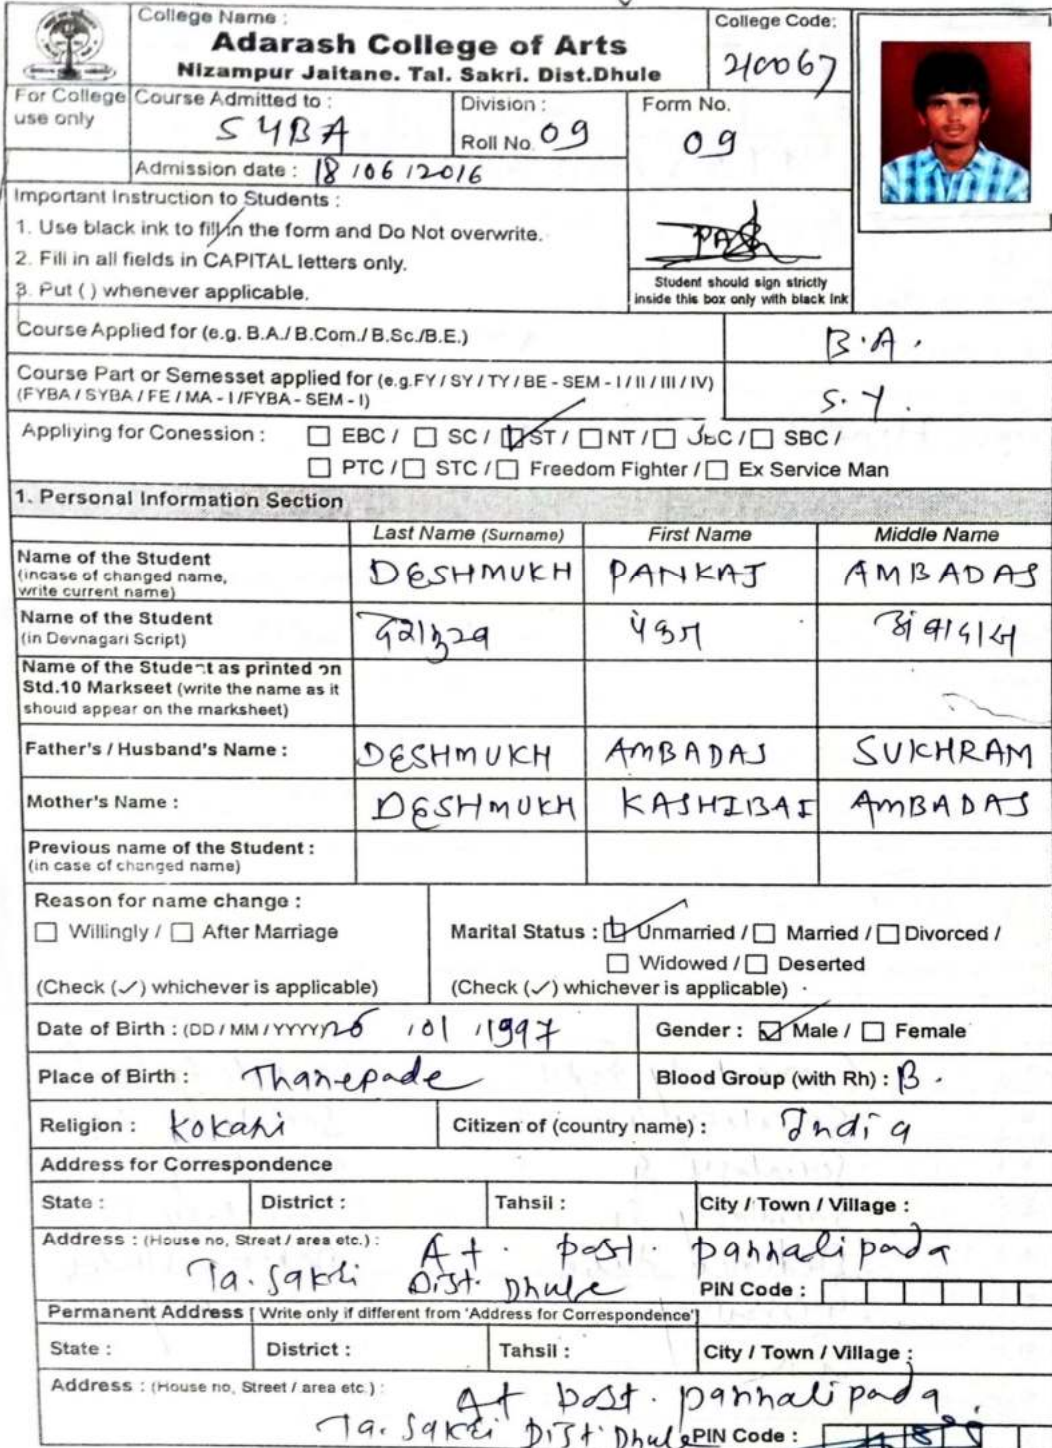 College Name :
Adarash College of Arts
Nizampur Jaitane. Tal. Sakri. Dist.Dhule
College Code:
210067
For College use only
Course Admitted to :
SYBA
Division :
Roll No. 09
Form No.
09
Admission date : 18 / 06 / 2016
Important Instruction to Students :
1. Use black ink to fill in the form and Do Not overwrite.
2. Fill in all fields in CAPITAL letters only.
3. Put ( ) whenever applicable.
Student should sign strictly
inside this box only with black Ink
Course Applied for (e.g. B.A./ B.Com./ B.Sc./B.E.)
B.A.
Course Part or Semesset applied for (e.g.FY / SY / TY / BE - SEM - I / II / III / IV)
(FYBA / SYBA / FE / MA - I /FYBA - SEM - I)
S.Y.
Appliying for Conession : EBC / SC / ST / NT / JBC / SBC /
PTC / STC / Freedom Fighter / Ex Service Man
1. Personal Information Section
Last Name (Surname) First Name Middle Name
Name of the Student
(incase of changed name,
write current name)
DESHMUKH PANKAJ AMBADAS
Name of the Student
(in Devnagari Script)
देशमुख पंकज अंबादास
Name of the Student as printed on
Std.10 Markseet (write the name as it
should appear on the marksheet)
Father's / Husband's Name : DESHMUKH AMBADAS SUKHRAM
Mother's Name : DESHMUKH KASHIBAI AMBADAS
Previous name of the Student :
(in case of changed name)
Reason for name change :
Willingly / After Marriage
(Check (✓) whichever is applicable)
Marital Status : Unmarried / Married / Divorced /
Widowed / Deserted
(Check (✓) whichever is applicable)
Date of Birth : (DD / MM / YYYY) 26 / 01 / 1997
Gender : Male / Female
Place of Birth : Thanepade
Blood Group (with Rh) : B.
Religion : Kokani
Citizen of (country name) : India
Address for Correspondence
State : District : Tahsil : City / Town / Village :
Address : (House no, Street / area etc.) : At. post. pannalipada
Ta. Sakri Dist. Dhule PIN Code :
Permanent Address [ Write only if different from 'Address for Correspondence']
State : District : Tahsil : City / Town / Village :
Address : (House no, Street / area etc.) : At post. pannalipada
Ta. Sakri Dist. Dhule PIN Code :